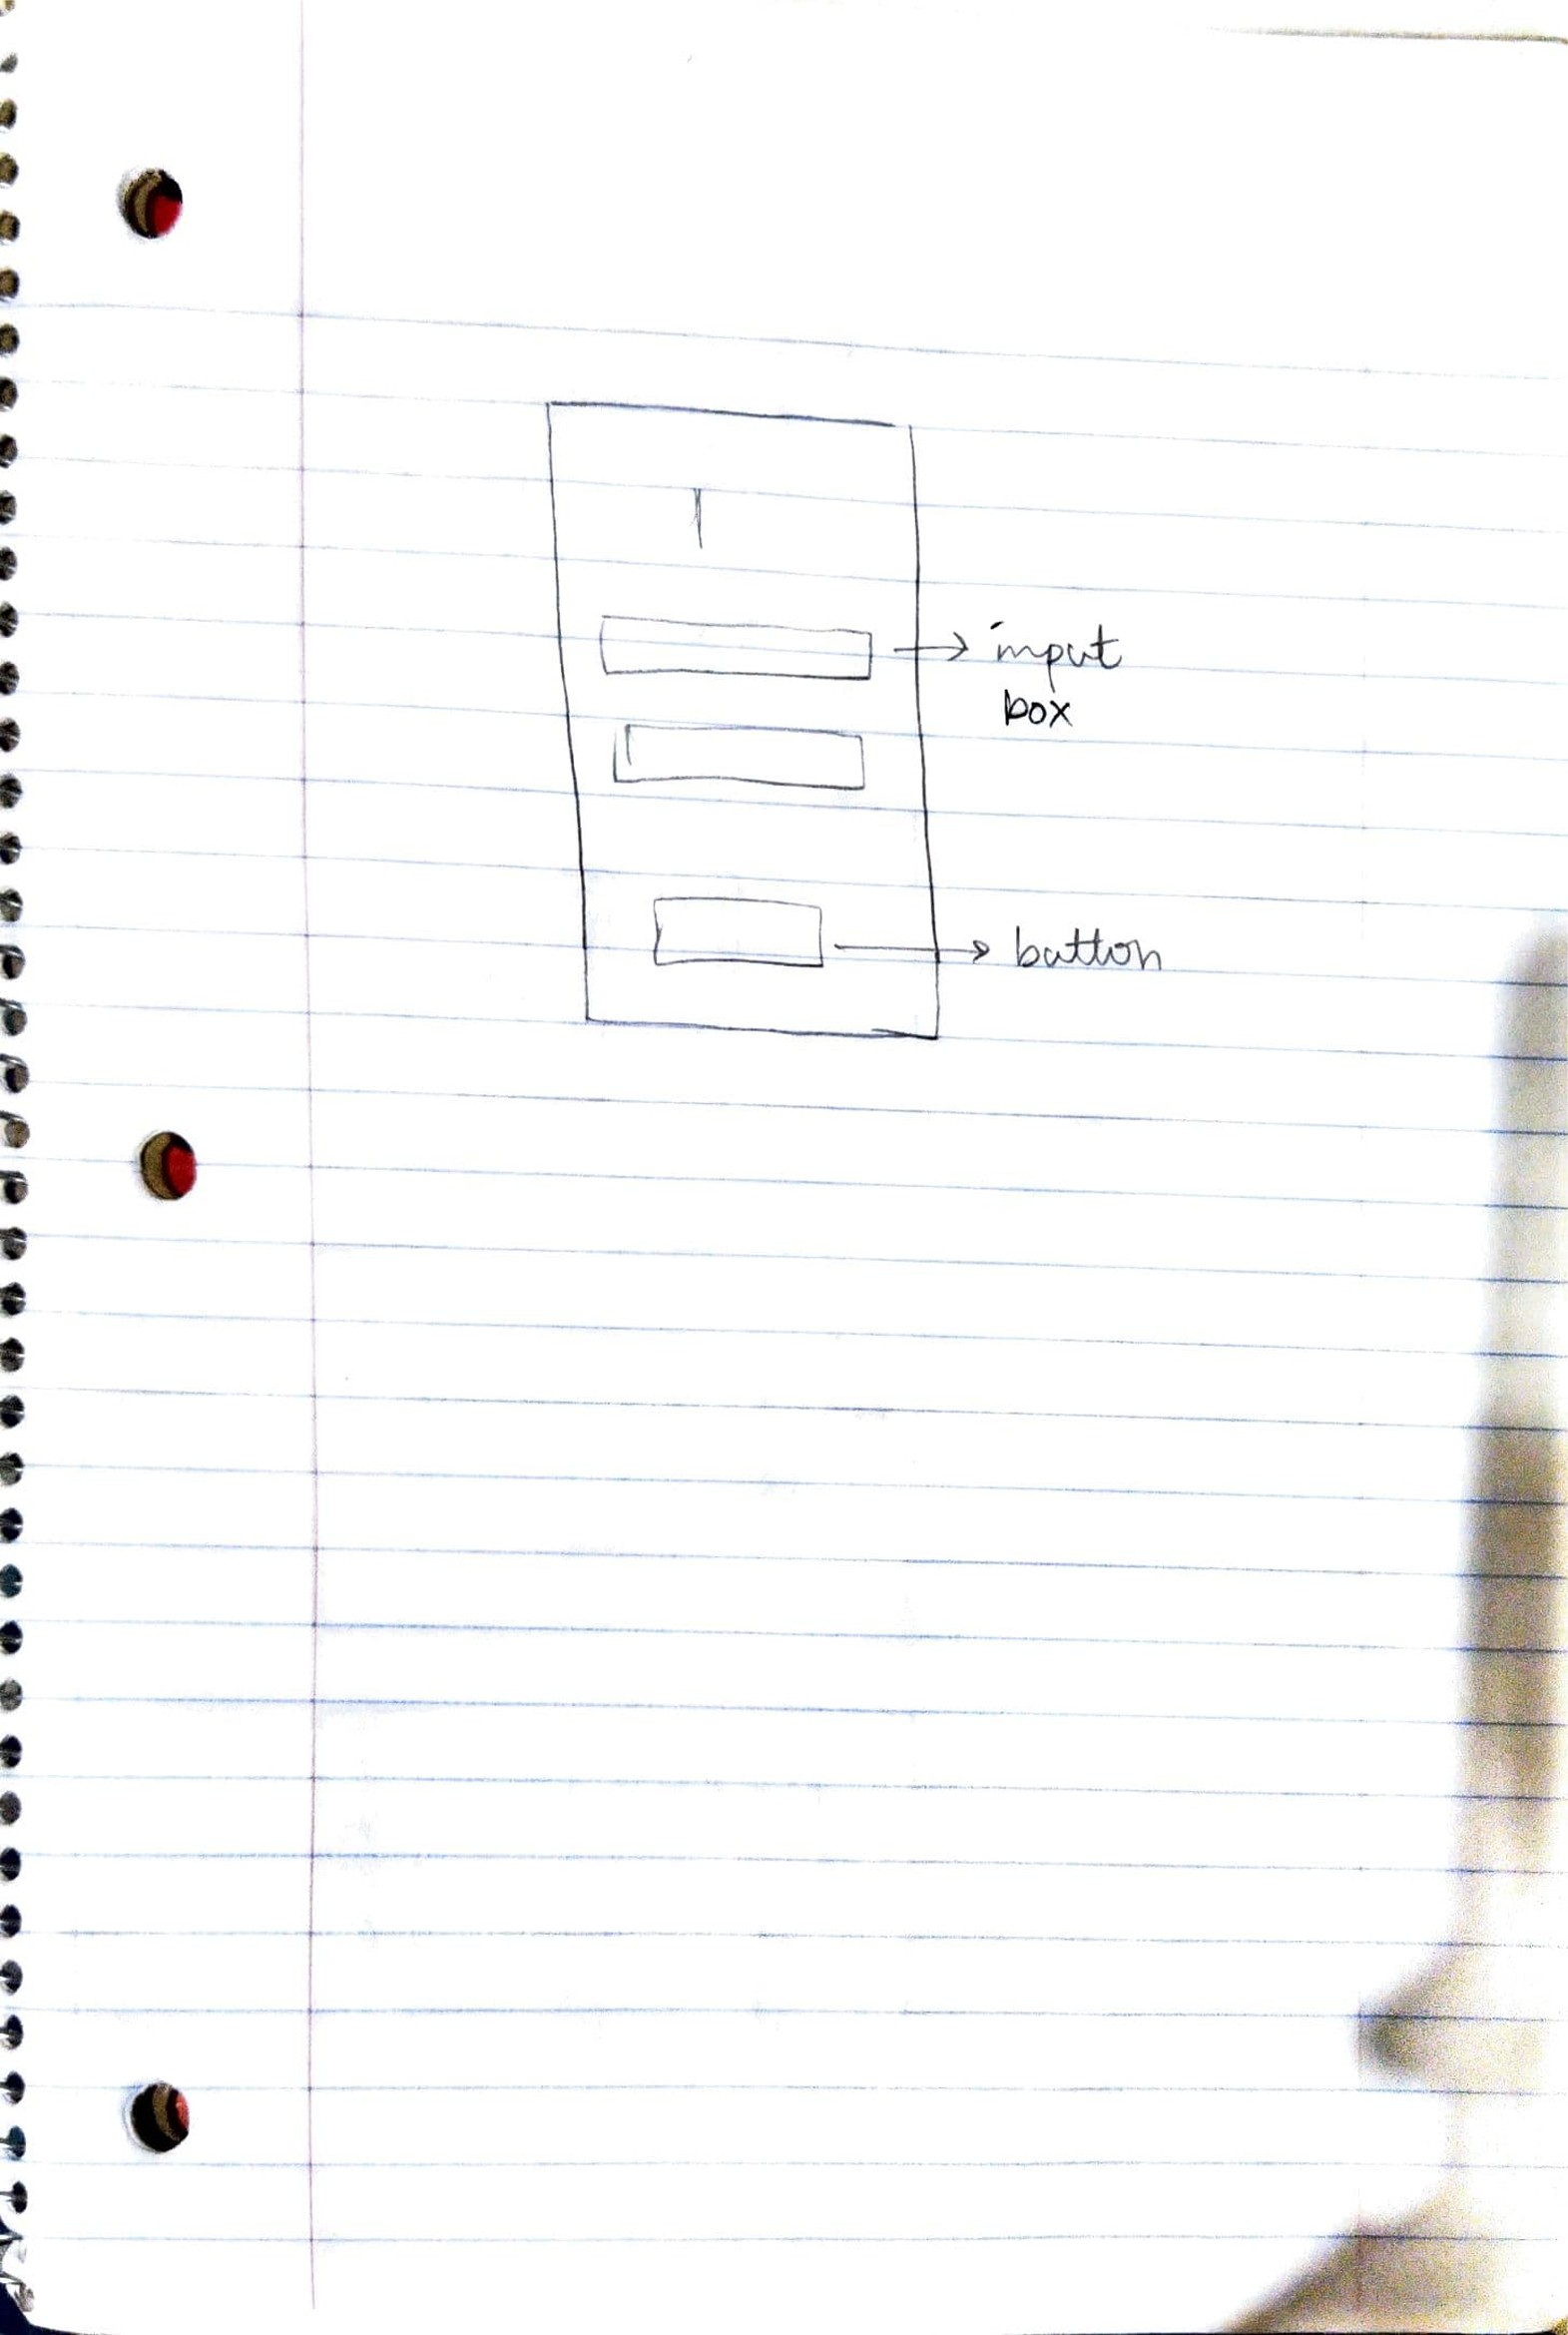 input
box
button